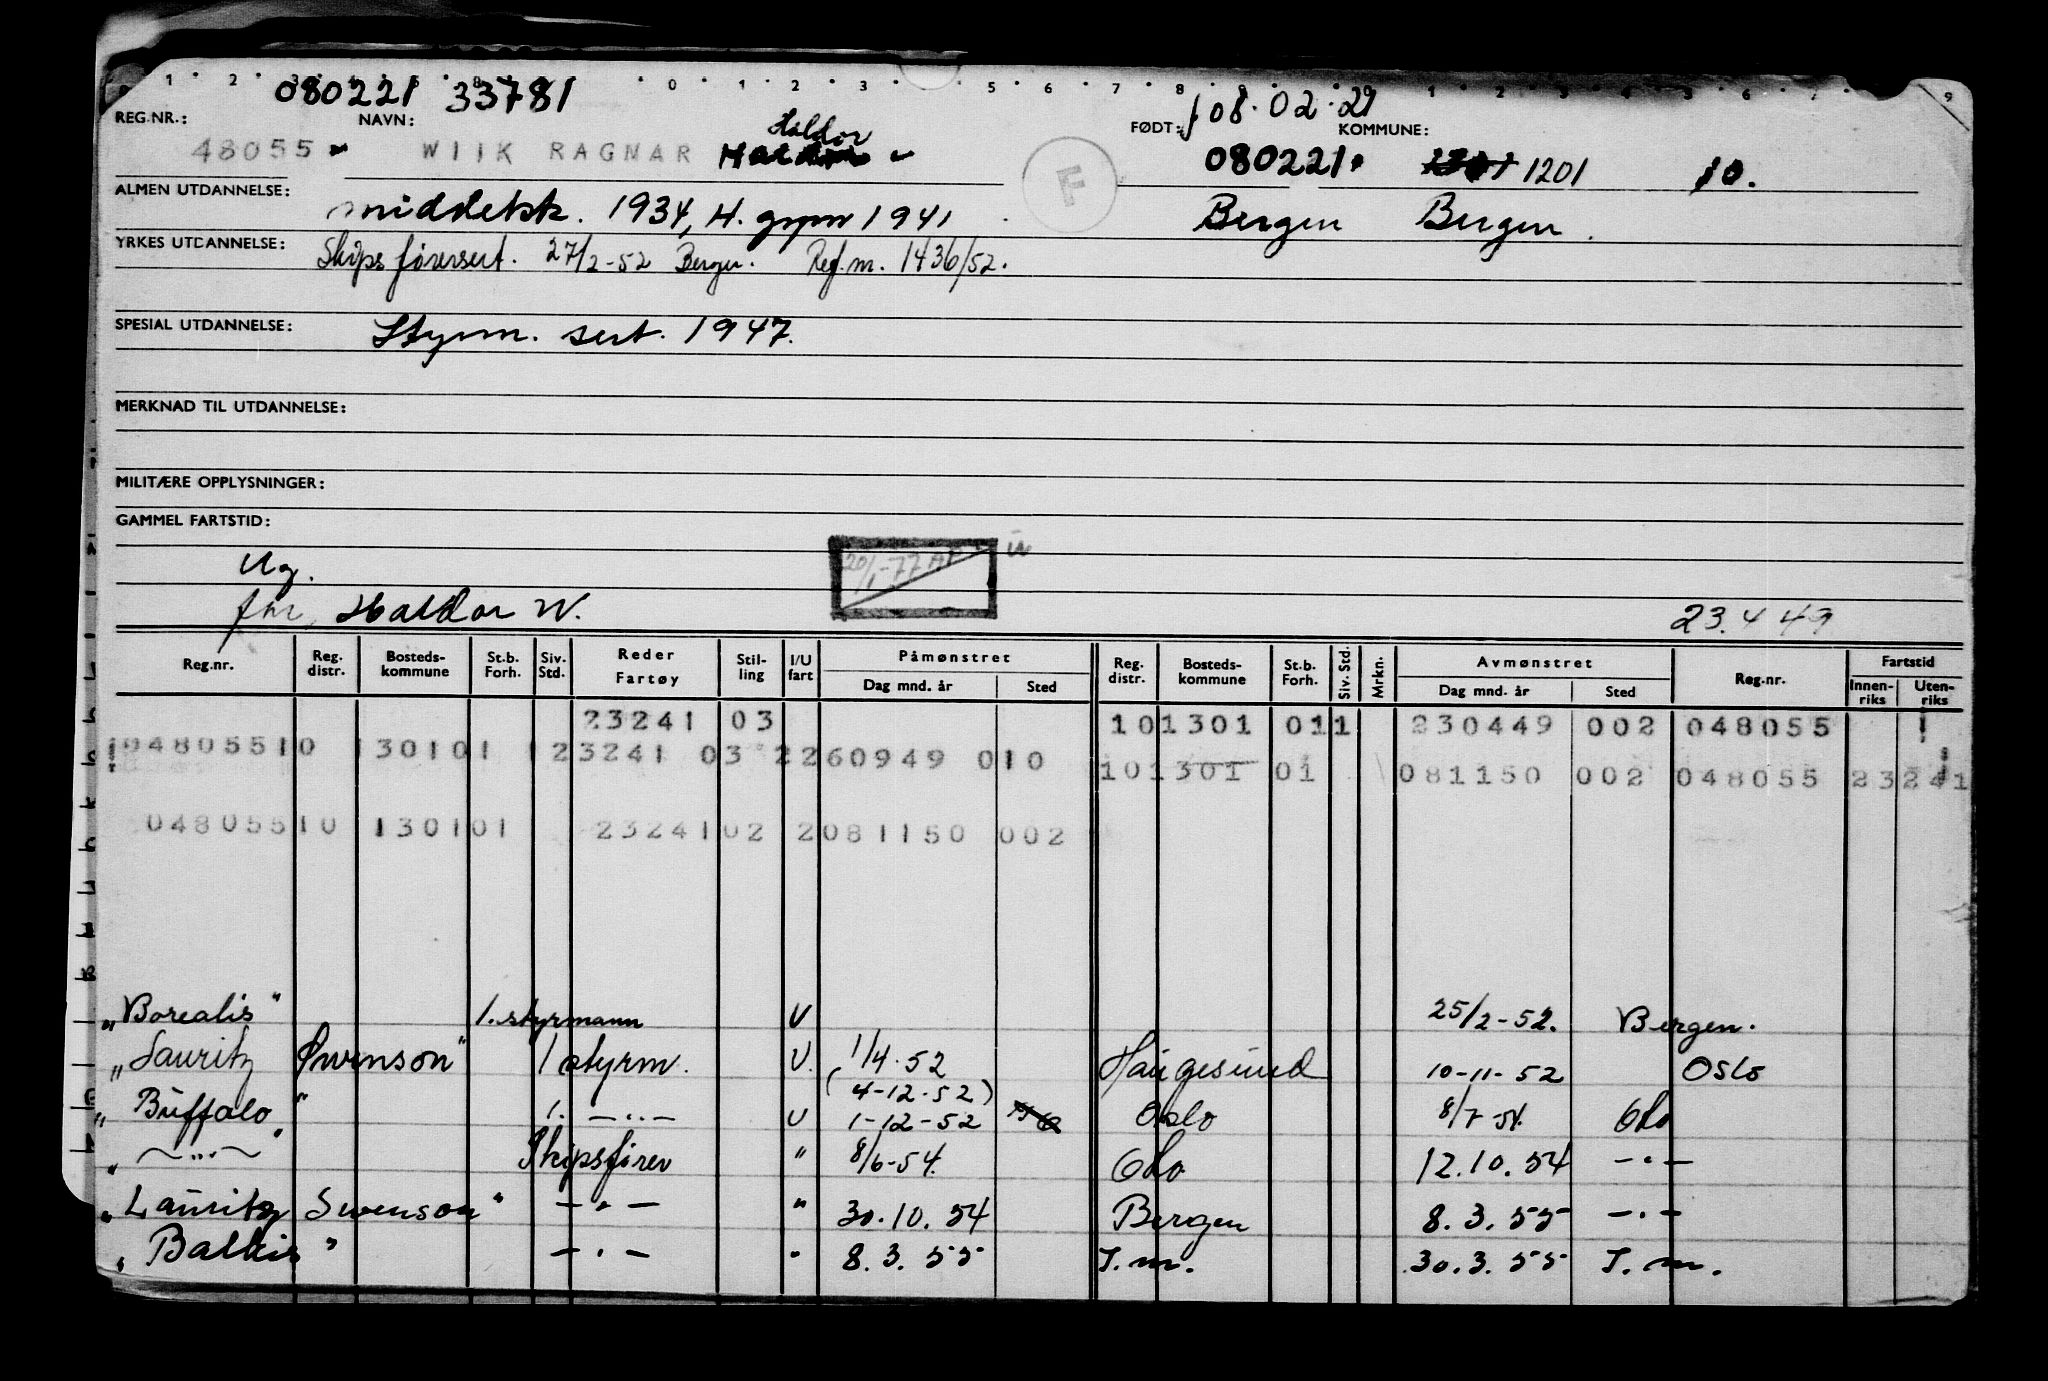 080221 33781
08.02.21
REG.NR.: NAVN: FØDT: KOMMUNE:
Haldor
48055 WIIK RAGNAR F 080221 1201 10.
ALMEN UTDANNELSE: middelsk. 1934, H. gymn 1941 Bergen Bergen.
YRKES UTDANNELSE: Skipsførersert. 27/2-52 Bergen. Ref.nr. 1436/52.
SPESIAL UTDANNELSE: Styrm. sert. 1947.
MERKNAD TIL UTDANNELSE:
MILITÆRE OPPLYSNINGER:
GAMMEL FARTSTID:
Ug. 20/1-77
far, Haldor W. 23.4 49
Reg.nr. Reg. distr. Bosteds-kommune St.b. Forh. Siv. Std. Reder Fartøy Stil-ling I/U fart Påmønstret Dag mnd. år Sted Reg. distr. Bosteds-kommune St.b. Forh. Siv. Std. Mrkn. Avmønstret Dag mnd. år Sted Reg.nr. Fartstid Innen-riks Uten-riks
23241 03 101301 011 230449 002 048055
04805510 130101 123241 03 2260949 010
101301 01 081150 002 048055 23241
04805510 130101 2324102 2081150 002
"Borealis" 1. styrmann U 25/2-52. Bergen.
"Lauritz Swenson" 1 styrm. U. 1/4.52 Haugesund 10-11-52 Oslo
(4-12-52)
"Buffalo" 1. —"— U 1-12-52 Oslo 8/7-54. Oslo
" —"— " Skipsfører " 8/6-54. Oslo 12.10.54 —"—
"Lauritz Swenson" —"— " 30.10.54 Bergen 8.3.55 —"—
"Balkis" —"— " 8.3.55 T.m. 30.3.55 T.m.